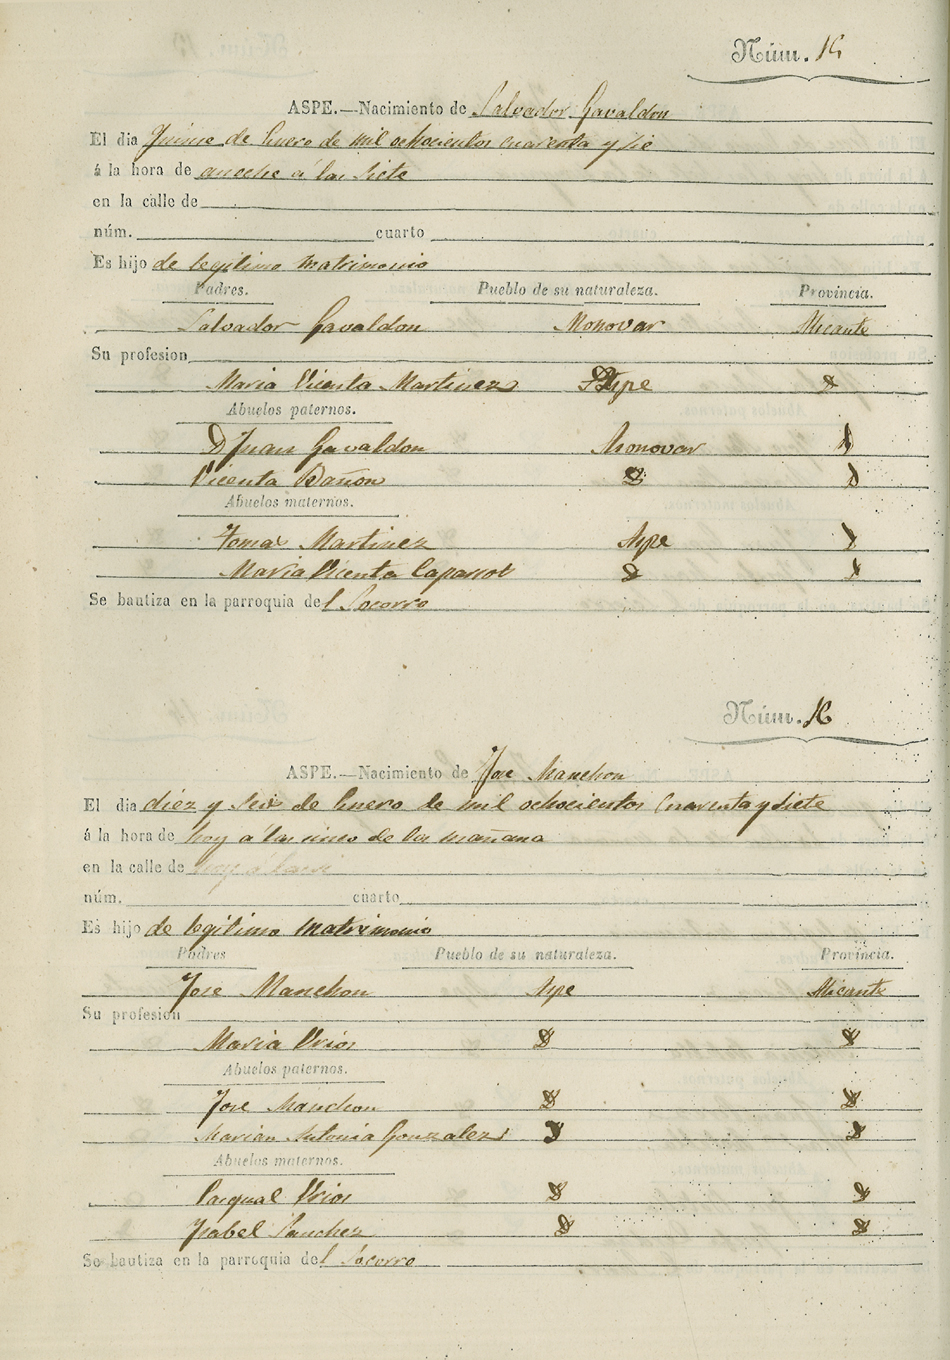 Núm. 15
ASPE.—Nacimiento de Salvador Gavaldon
El dia Quince de Enero de mil ochocientos cuarenta y sie
á la hora de anoche á las siete
en la calle de
núm. cuarto
Es hijo de legitimo matrimonio
Padres. Pueblo de su naturaleza. Provincia.
Salvador Gavaldon Monovar Alicante
Su profesion
Maria Vicenta Martinez Aspe D
Abuelos paternos.
D Juan Gavaldon Monovar D
Vicenta Bañon D D
Abuelos maternos.
Tomas Martinez Aspe D
Maria Vicenta D D
Se bautiza en la parroquia del Socorro
Núm. 16
ASPE.—Nacimiento de Jose Manchon
El dia diez y seis de Enero de mil ochocientos Cuarenta y siete
á la hora de hoy á las cinco de la mañana
en la calle de
núm. cuarto
Es hijo de legitimo matrimonio
Padres Pueblo de su naturaleza. Provincia.
Jose Manchon Aspe Alicante
Su profesion
Maria Urios D D
Abuelos paternos.
Jose Manchon D D
Marian Antonia Gonzalez D D
Abuelos maternos.
Pasqual Urios D D
Ysabel Sanchez D D
Se bautiza en la parroquia del Socorro